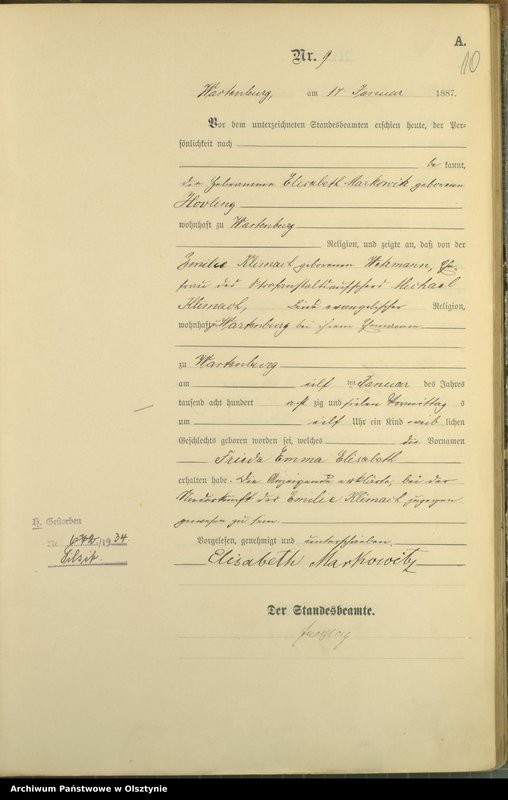 A.
10
Nr. 9
Wartenburg, am 14 Januar 1887.
Vor dem unterzeichneten Standesbeamten erschien heute, der Per-
sönlichkeit nach
be kannt,
die Hebeamme Elisabeth Markowitz geborene
wohnhaft zu Wartenburg
Religion, und zeigte an, daß von der
Emilie Klimach geborenen Wetzmann, Ehe-
frau des Strafanstaltsaufsehers Michael
Klimach, beide evangelischer Religion,
wohnhaft zu Wartenburg bei ihrem Ehemanne
zu Wartenburg
am eilf ten Januar des Jahres
tausend acht hundert acht zig und sieben Vormittag s
um eilf Uhr ein Kind weib lichen
Geschlechts geboren worden sei, welches die Vornamen
Frieda Emma Elisabeth
erhalten habe. Die Anzeigende erklärte, bei der
Niederkunft der Emilie Klimach zugegen
gewesen zu sein.
Vorgelesen, genehmigt und unterschrieben.
Elisabeth Markowitz
Der Standesbeamte.
H. Gestorben
Nr. 642/1934
Tilsit.
Archiwum Państwowe w Olsztynie